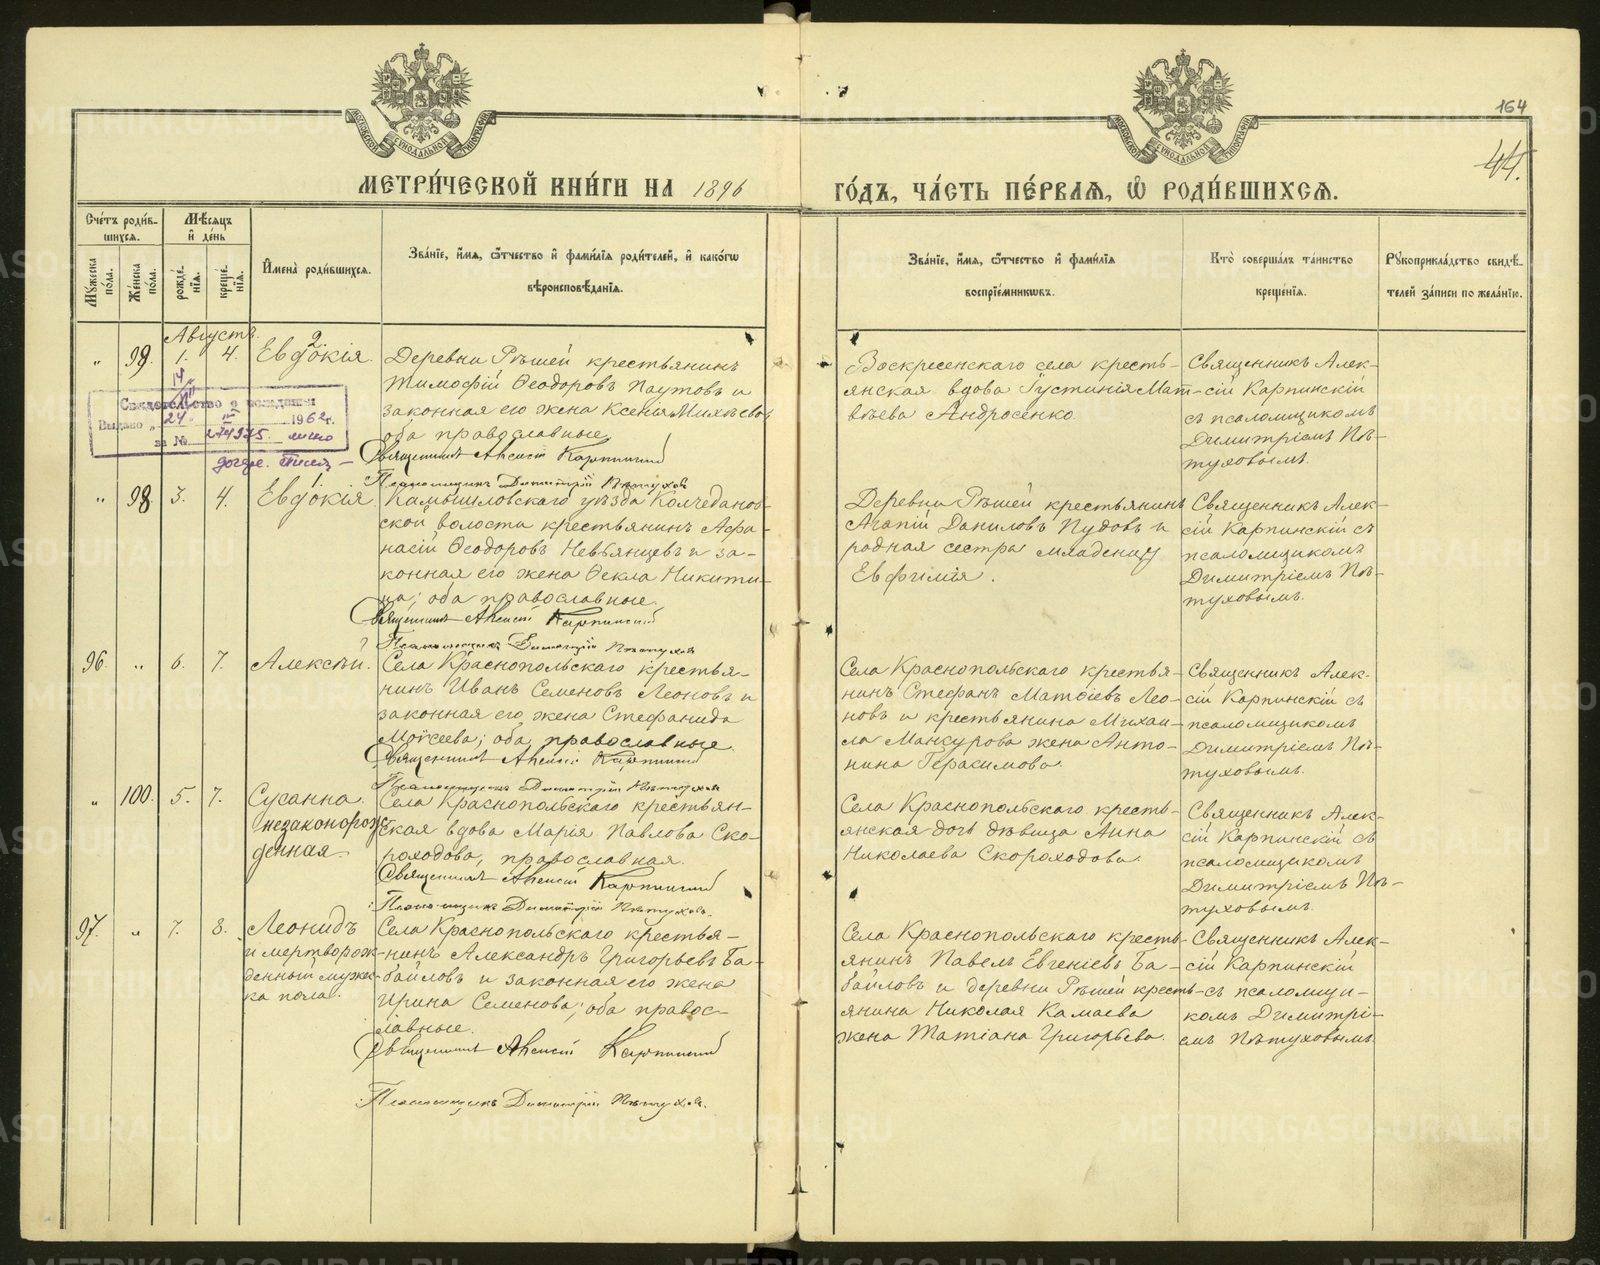 164
44.
МЕТРИ́ЧЕСКОЙ КНИ́ГИ НА 1896
ГО́ДЪ, ЧА́СТЬ ПЕ́РВАѦ, Ѽ РОДИ́ВШИХСѦ.
Сче́тъ роди́в-
шихсѧ.
Мѣ́сѧцъ
и҆ де́нь
Мꙋ́жеска
по́ла.
Же́нска
по́ла.
рожде́-
нїѧ.
креще́-
нїѧ.
И҆мена̀ роди́вшихсѧ.
Зва́нїе, и҆́мѧ, ѻ҆́тчество и҆ фами́лїѧ роди́телей, и҆ како́гѡ
вѣроисповѣ́данїѧ.
Зва́нїе, и҆́мѧ, ѻ҆́тчество и҆ фами́лїѧ
воспрїе́мникѡвъ.
Кто̀ соверша́лъ та́инство
креще́нїѧ.
Рꙋкоприкла́дство свидѣ́-
телей за́писи по жела́нїю.
Августъ.
„ 99. 1. 4. Евдокія 2.
Деревни Рѣшей крестьянинъ
Тимофій Ѳеодоровъ Паутовъ и
законная его жена Ксенія Михѣева,
оба православные.
Священникъ Алексій Карпинскій
Псаломщикъ Димитрій Пѣтуховъ
Воскресенскаго села кресть-
янская вдова Іустинія Мат-
вѣева Андросенко.
Священникъ Алек-
сій Карпинскій
съ псаломщикомъ
Димитріемъ Пѣ-
туховымъ.
Свидетельство о рождении
Выдано „24. 1962 г.
за № 274975
„ 98 3. 4. Евдокія 1.
Камышловскаго уѣзда Колчеданов-
ской волости крестьянинъ Афа-
насій Ѳеодоровъ Невьянцевъ и за-
конная его жена Ѳекла Никити-
на; оба православные.
Священникъ Алексій Карпинскій
Псаломщикъ Димитрій Пѣтуховъ
Деревни Рѣшей крестьянинъ
Агапій Даниловъ Пудовъ и
родная сестра младенцу
Евфимія.
Священникъ Алек-
сій Карпинскій съ
псаломщикомъ
Димитріемъ Пѣ-
туховымъ.
96. „ 6. 7. Алексѣй.
Села Краснопольскаго крестья-
нинъ Иванъ Семеновъ Леоновъ и
законная его жена Стефанида
Моѵсеева; оба православные.
Священникъ Алексій Карпинскій
Псаломщикъ Димитрій Пѣтуховъ
Села Краснопольскаго крестья-
нинъ Стефанъ Матѳіевъ Лео-
новъ и крестьянина Михаи-
ла Манкурова жена Анто-
нина Герасимова.
Священникъ Алек-
сій Карпинскій съ
псаломщикомъ
Димитріемъ Пѣ-
туховымъ.
„ 100. 5. 7. Сусанна.
незаконорож-
денная.
Села Краснопольскаго крестьян-
ская вдова Марія Павлова Ско-
роходова, православная.
Священникъ Алексій Карпинскій
Псаломщикъ Димитрій Пѣтуховъ.
Села Краснопольскаго кресть-
янская дочь дѣвица Анна
Николаева Скороходова.
Священникъ Алек-
сій Карпинскій съ
псаломщикомъ
Димитріемъ Пѣ-
туховымъ.
97. „ 7. 8. Леонидъ
и мертворож-
денный мужес-
ка пола.
Села Краснопольскаго крестья-
нинъ Александръ Григорьевъ Ба-
байловъ и законная его жена
Ирина Семенова; оба правос-
лавные.
Священникъ Алексій Карпинскій
Псаломщикъ Димитрій Пѣтуховъ.
Села Краснопольскаго кресть-
янинъ Павелъ Евгеніевъ Ба-
байловъ и деревни Рѣшей кресть-
янина Николая Камаева
жена Татіана Григорьева.
Священникъ Алек-
сій Карпинскій
съ псаломщи-
комъ Димитрі-
емъ Пѣтуховымъ.
METRIKI.GASO-URAL.RU